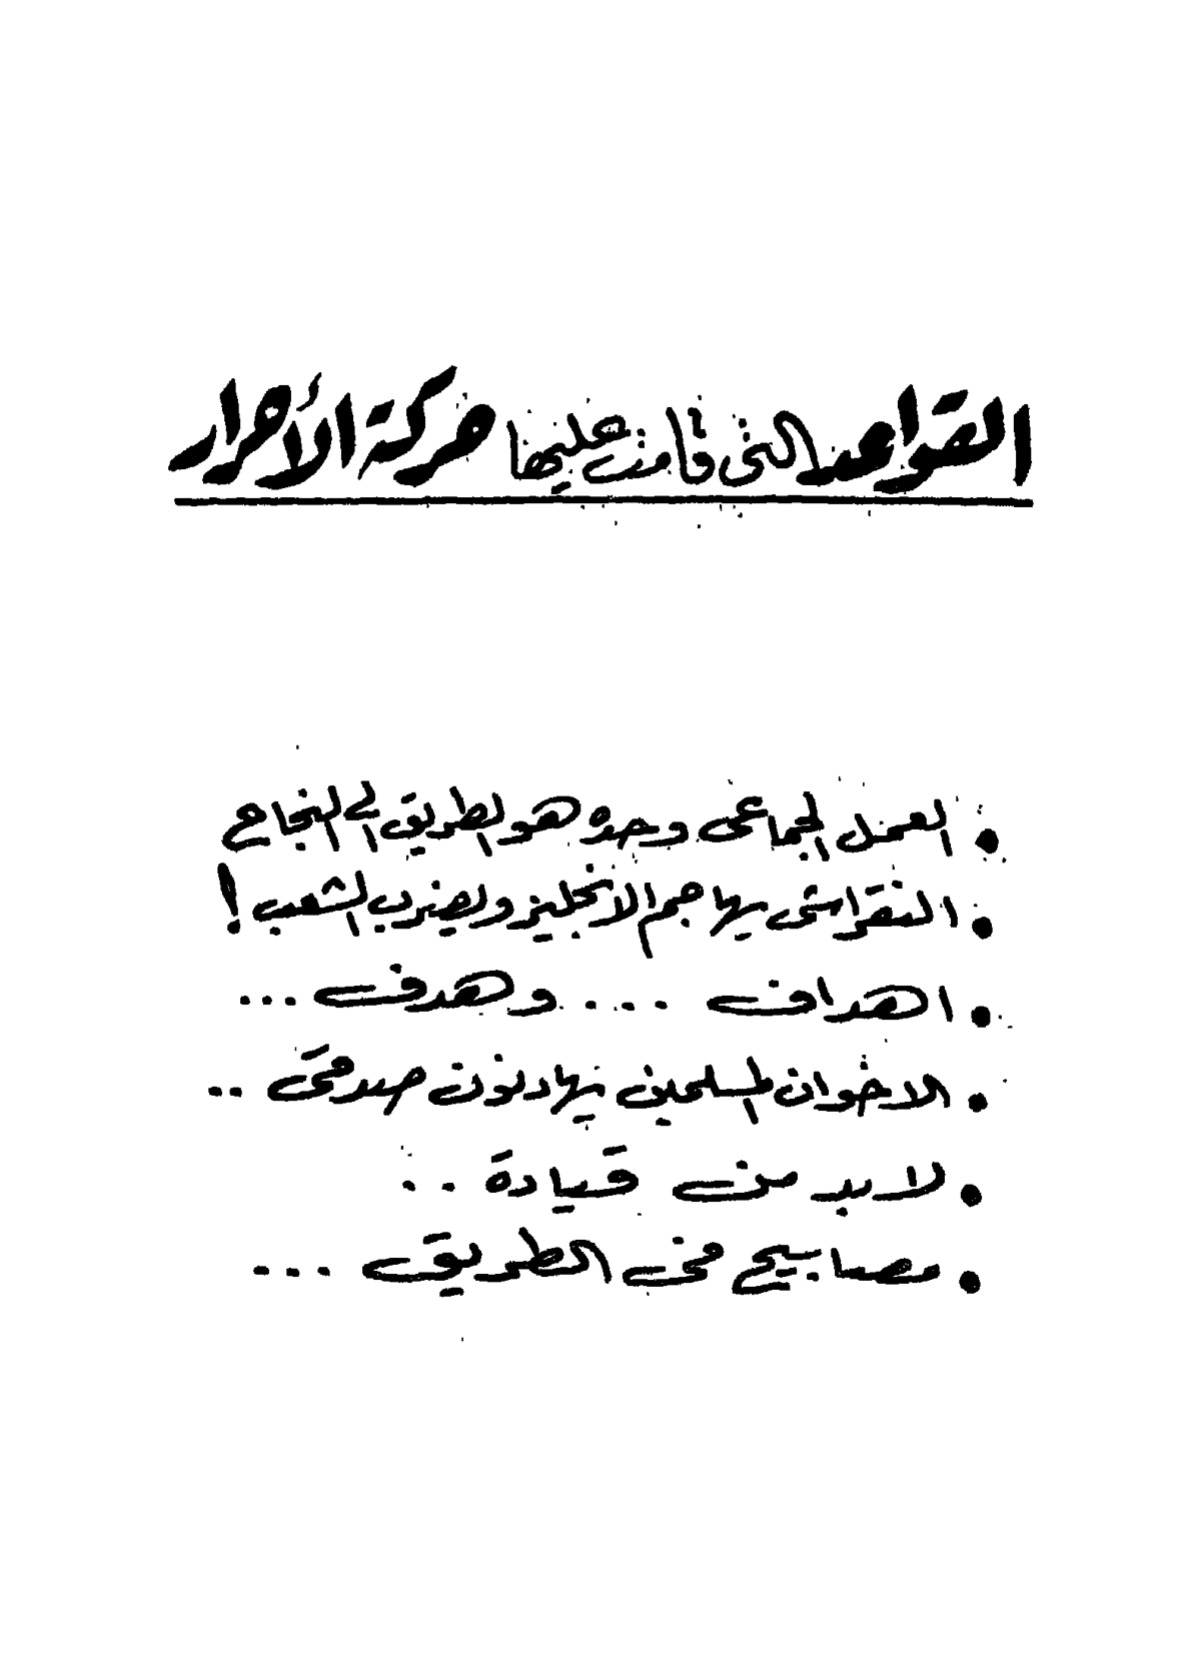 القواعد التى قامت عليها حركة الأحرار
• العمل الجماعى وحده هو الطريق الى النجاح
• النقراشى يهاجم الانجليز ويضرب الشعب !
• اهداف . . . وهدف ...
• الاخوان المسلمين يهادنون صدقى ..
• لابد من قيادة . .
• مصابيح فى الطريق ...